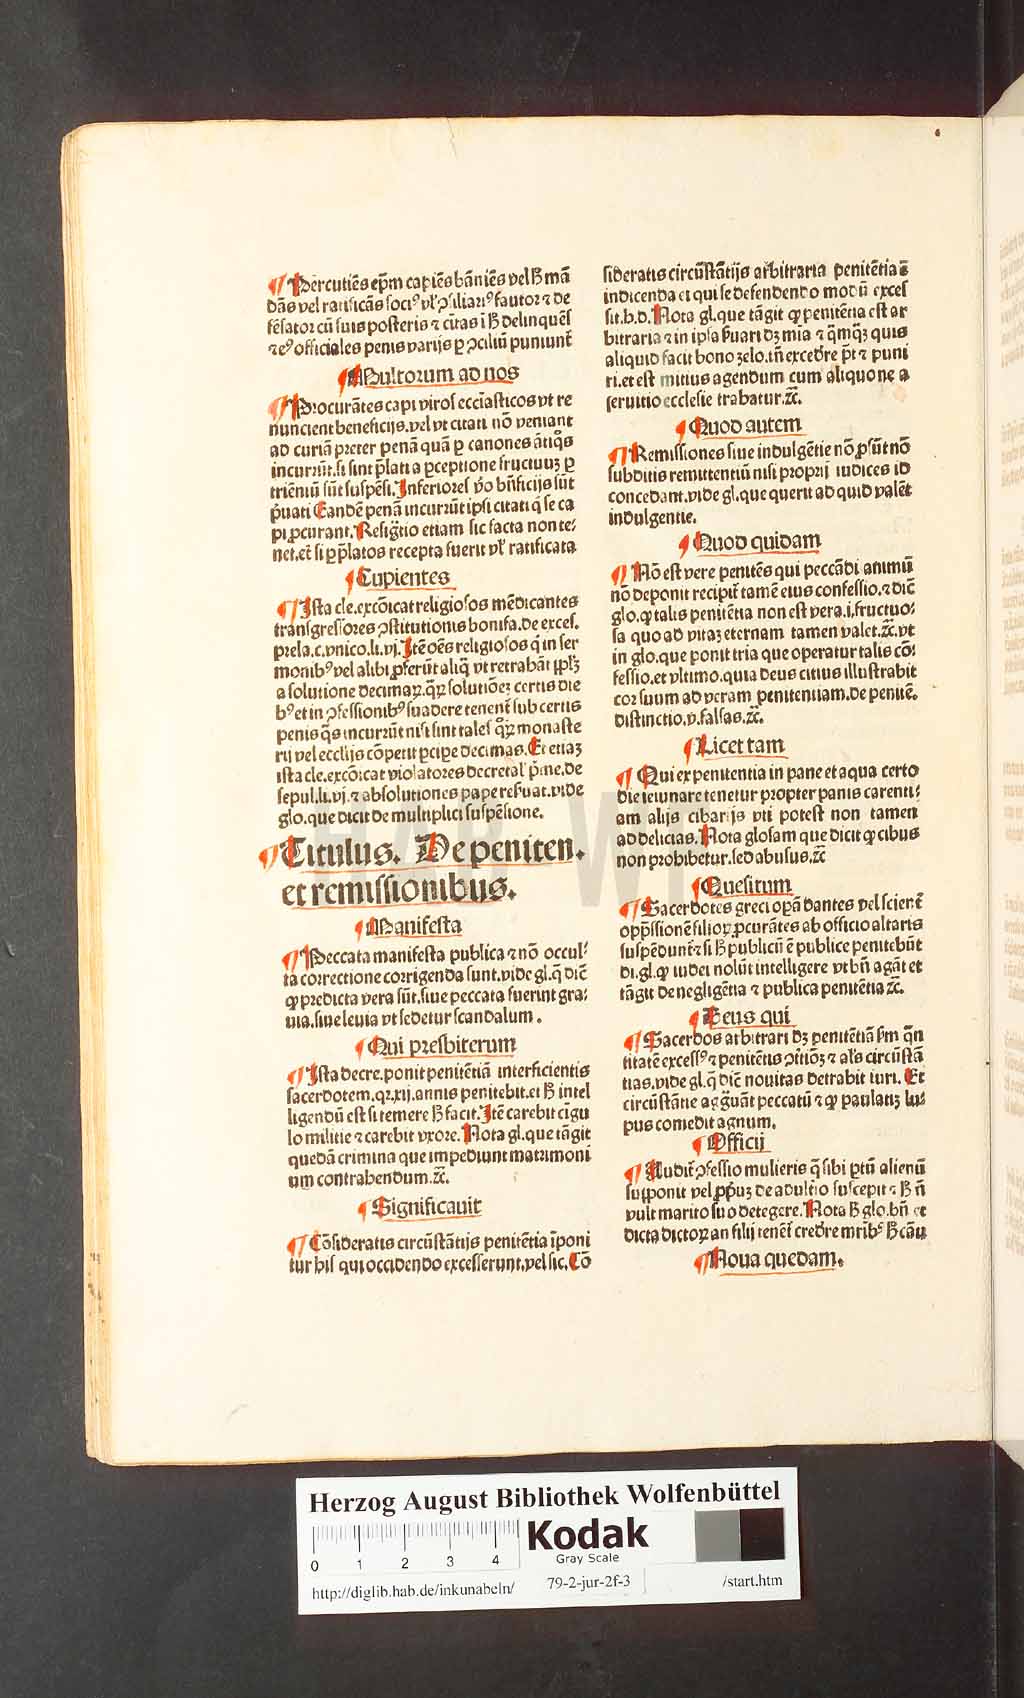 ¶ Percutiēs ep̄m capiēs bānies vel h̄ mā
dās vel ratificās soci⁹ vl' ꝯsiliari⁹ fautor ⁊ de
fēsator cū suis posteris ⁊ cītas ī h̄ delinquēs
⁊ e⁹ officiales penis varijs ꝑ ꝯciliū puniunt̄
¶ Multorum ad nos
¶ Procurātes capi viros eccl'iasticos vt re
nuncient beneficijs. vel vt citati nō veniant
ad curiā preter penā quā ꝑ canones ātiqͦs
incurrūt. si sint p̄lati a ꝑceptione fructuuꝫ ꝑ
triēniū sūt suspēsi. Inferiores ꝟo bn̄ficijs sūt
p̄uati Eandē penā incurrūt ipsi citati q̄ se ca
pi ꝓcurant. Resig̈tio etiam sic facta non te⸗
net. et̄ si ꝑ p̄latos recepta fuerit vl' ratificata
¶ Cupientes
¶ Ista cle. excōicat religiosos mēdicantes
transgressores ꝯstitutionis bonifa. de exces.
prela. c. vnico. li. vj. Itē oēs religiosos q̄ in ser
monib⁹ vel alibi ꝓferūt aliq̄ vt retrahāt ip̄lꝫ
a solutione decimaꝝ. qͣꝝ solutiōeꝫ certis die
b⁹ et in ꝯfessionib⁹ suadere tenent̄ sub certis
penis qͣs incurrūt nisi sint tales qͦꝝ monaste
rij vel eccl'ijs cōpetit ꝑcipe decimas. Et etiaꝫ
ista cle. excōicat violatores decretal' p̄me. de
sepul. li. vj. ⁊ absolutiones pape resuat. vide
glo. que dicit de multiplici suspēsione.
¶ Titulus. De peniten.
et remissionibus.
¶ Manifesta
¶ Peccata manifesta publica ⁊ nō occul⸗
ta correctione corrigenda sunt. vide gl. q̄ dic̄
ꝙ predicta vera sūt. siue peccata fuerint gra⸗
uia. siue leuia vt sedetur scandalum.
¶ Qui presbiterum
¶ Ista decre. ponit penitētiā interficientis
sacerdotem. qꝛ xij. annis penitebit. et h̄ intel
ligendū est si temere h̄ facit. Itē carebit cīgu
lo militie ⁊ carebit vxore. Nota gl. que tāgit
quedā crimina que impediunt matrimoni
um contrahendum. ⁊c̄.
¶ Significauit
¶ Cōsideratis circūstātijs penitētia īponi
tur his qui occidendo excesserunt. vel sic. Cō
sideratis circūstātijs arbitraria penitētia ē
indicenda ei qui se defendendo modū exces
sit. h. d. Nota gl. que tāgit ꝙ penitētia est ar
bitraria ⁊ in ipsa ẜuari dꝫ mīa ⁊ q̄mqͣꝫ quis
aliquid facit bono zelo. tn̄ excedr̄e p̄t ⁊ puni
ri. et est mitius agendum cum aliquo ne a
seruitio ecclesie trahatur. ⁊c̄.
¶ Quod autem
¶ Remissiones siue indulgētie nō ꝓsūt nō
subditis remittentiū nisi proprij iudices id
concedant. vide gl. que querit ad quid valēt
indulgentie.
¶ Quod quidam
¶ Nō est vere penitēs qui peccādi animū
nō deponit recipit̄ tamē eius confessio. ⁊ dic̄
glo. ꝙ talis penitētia non est vera. i. fructuo⸗
sa quo ad vitaꝫ eternam tamen valet. ⁊c̄. vt
in glo. que ponit tria que operatur talis cō⸗
fessio. et vltimo. quia deus citius illustrabit
cor suum ad veram penitentiam. de penitē.
distinctio. v. falsas. ⁊c̄.
¶ Licet tam
¶ Qui ex penitentia in pane et aqua certo
die ieiunare tenetur propter panis carenti⸗
am alijs cibarijs vti potest non tamen
ad delicias. Nota glosam que dicit ꝙ cibus
non prohibetur. sed abusus. ⁊c̄
¶ Quesitum
¶ Sacerdotes greci opā dantes vel scient̄
opp̄ssionē filioꝝ ꝓcurātes ab officio altaris
suspēdunt̄ ⁊ si h̄ publicū ē publice penitebūt
di. gl. ꝙ iudei nolūt intelligere vt bn̄ agāt et
tāgit de negligētia ⁊ publica penitētia ⁊c̄.
¶ Deus qui
¶ Sacerdos arbitrari dꝫ penitētiā ẜm qͣn
titatē excess⁹ ⁊ penitētis ꝯtitiōꝫ ⁊ al's circūstā
tias. vide gl. q̄ dic̄ nouitas detrahit iuri. Et
circūstātie aggrauāt peccatū ⁊ ꝙ paulatiꝫ lu⸗
pus comedit agnum.
¶ Officij
¶ Audit̄ ꝯfessio mulieris q̄ sibi ꝑtū alienū
supponit vel ꝓp̄uꝫ de adultio suscepit ⁊ h̄ n̄
vult marito suo detegere. Nota h̄ glo. bn̄ et
dicta dictoꝝ an filij tenēt̄ credr̄e mrīb⁹ h̄ cāu
¶ Noua quedam.
Herzog August Bibliothek Wolfenbüttel
0 1 2 3 4
Kodak
Gray Scale
http://diglib.hab.de/inkunabeln/ 79-2-jur-2f-3 /start.htm
HAB WF